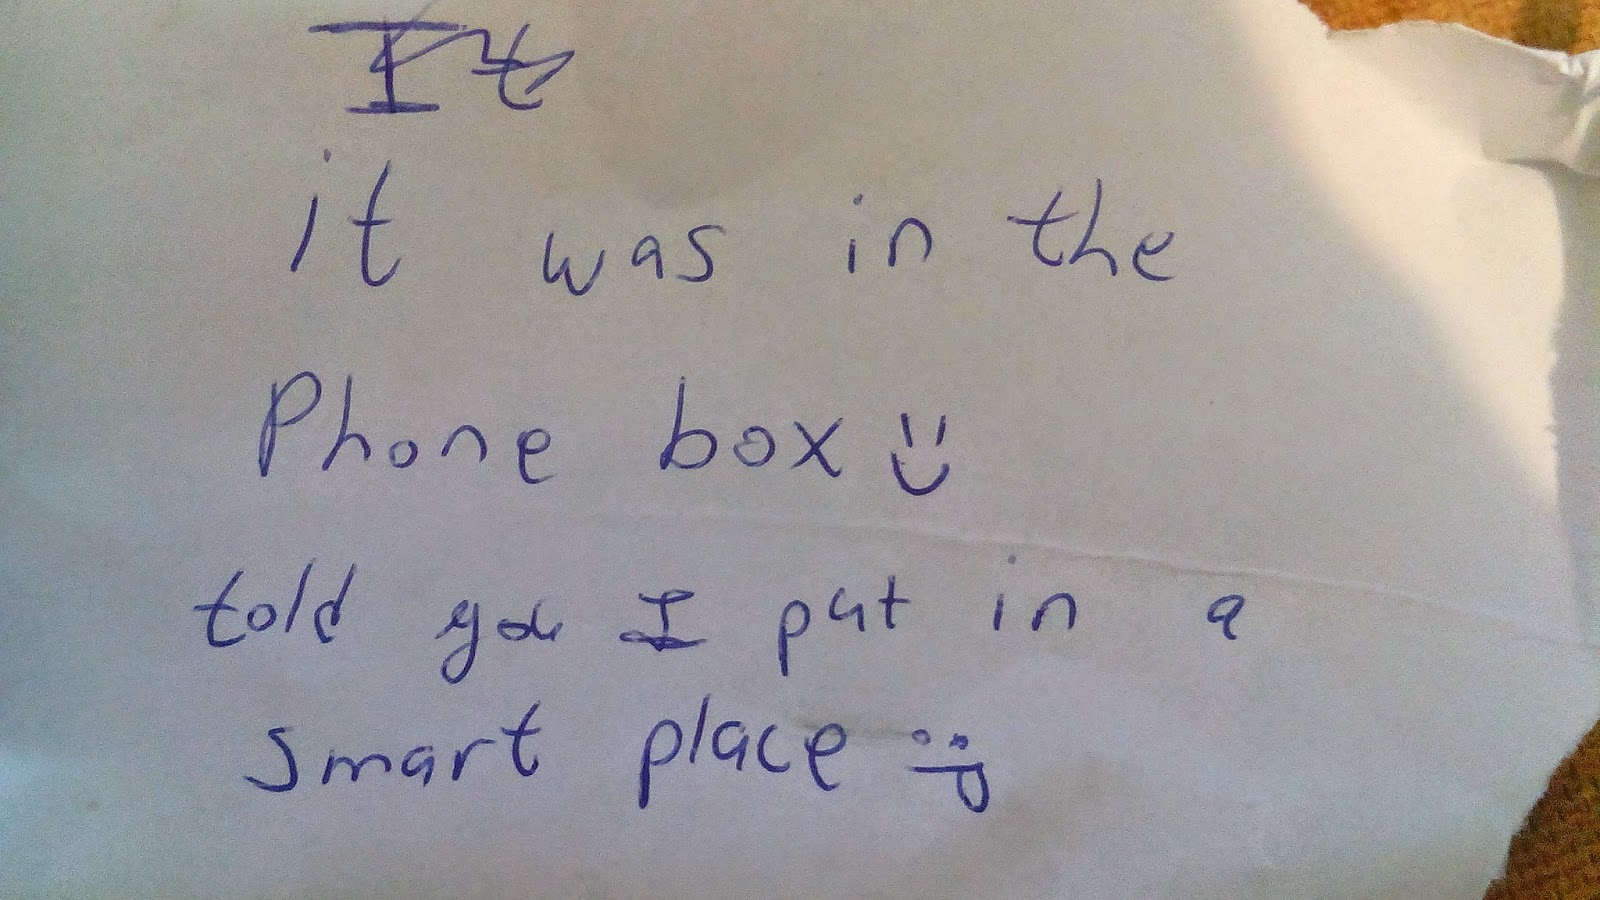 It
it was in the
Phone box :)
told you I put in a
smart place :P